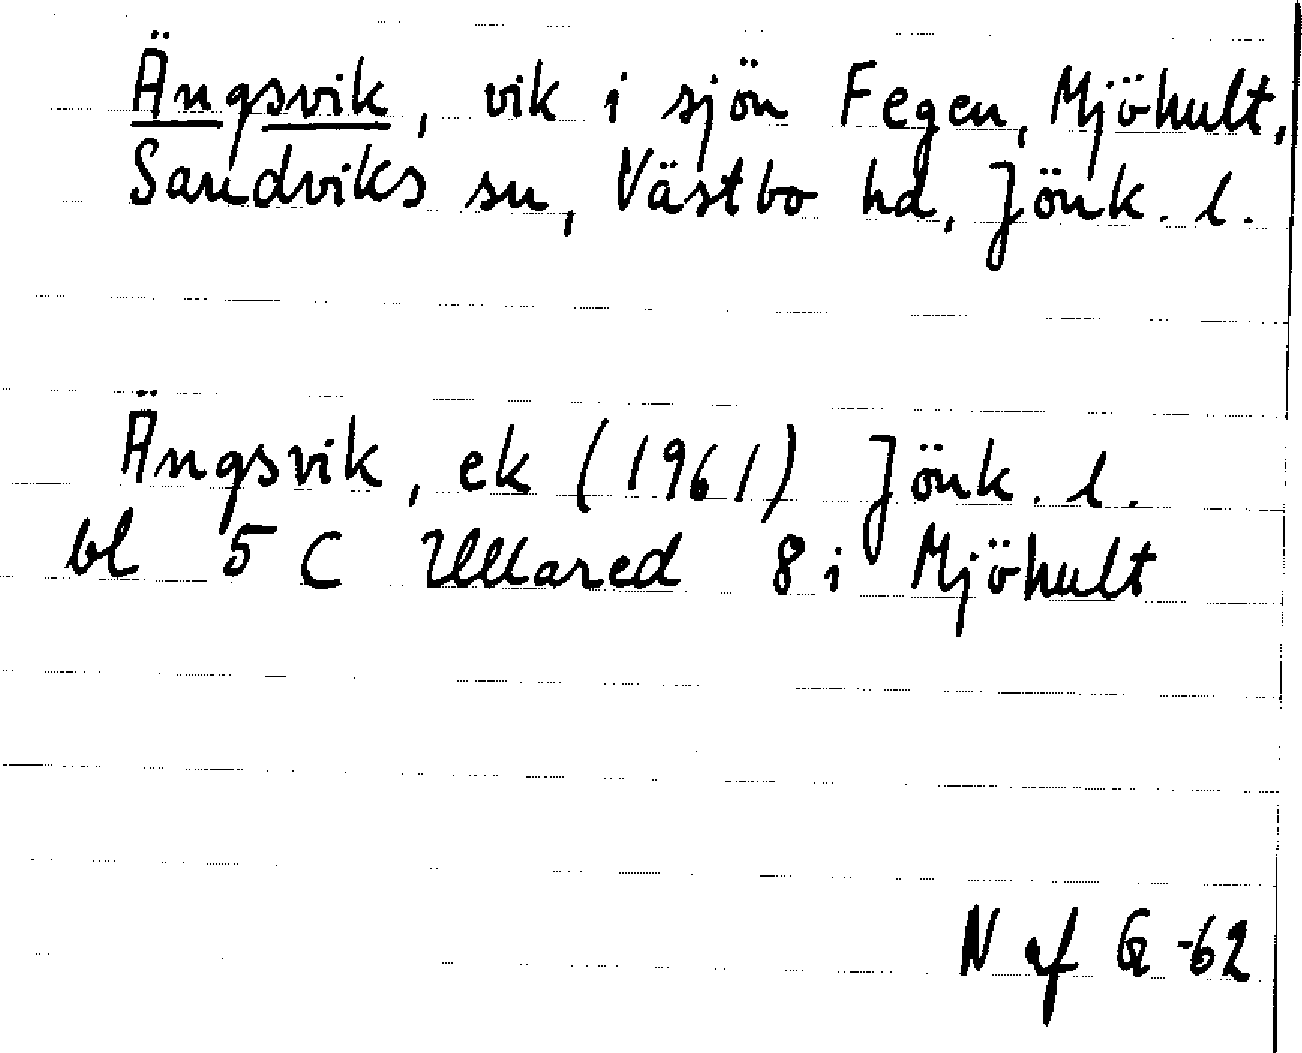 Ängsvik, vik i sjön Fegen, Mjöhult,
Sandviks sn, Västbo hd, Jönk. l.
Ängsvik, ek (1961) Jönk. l.
bl 5 C Ullared 8 i Mjöhult
N af G -62